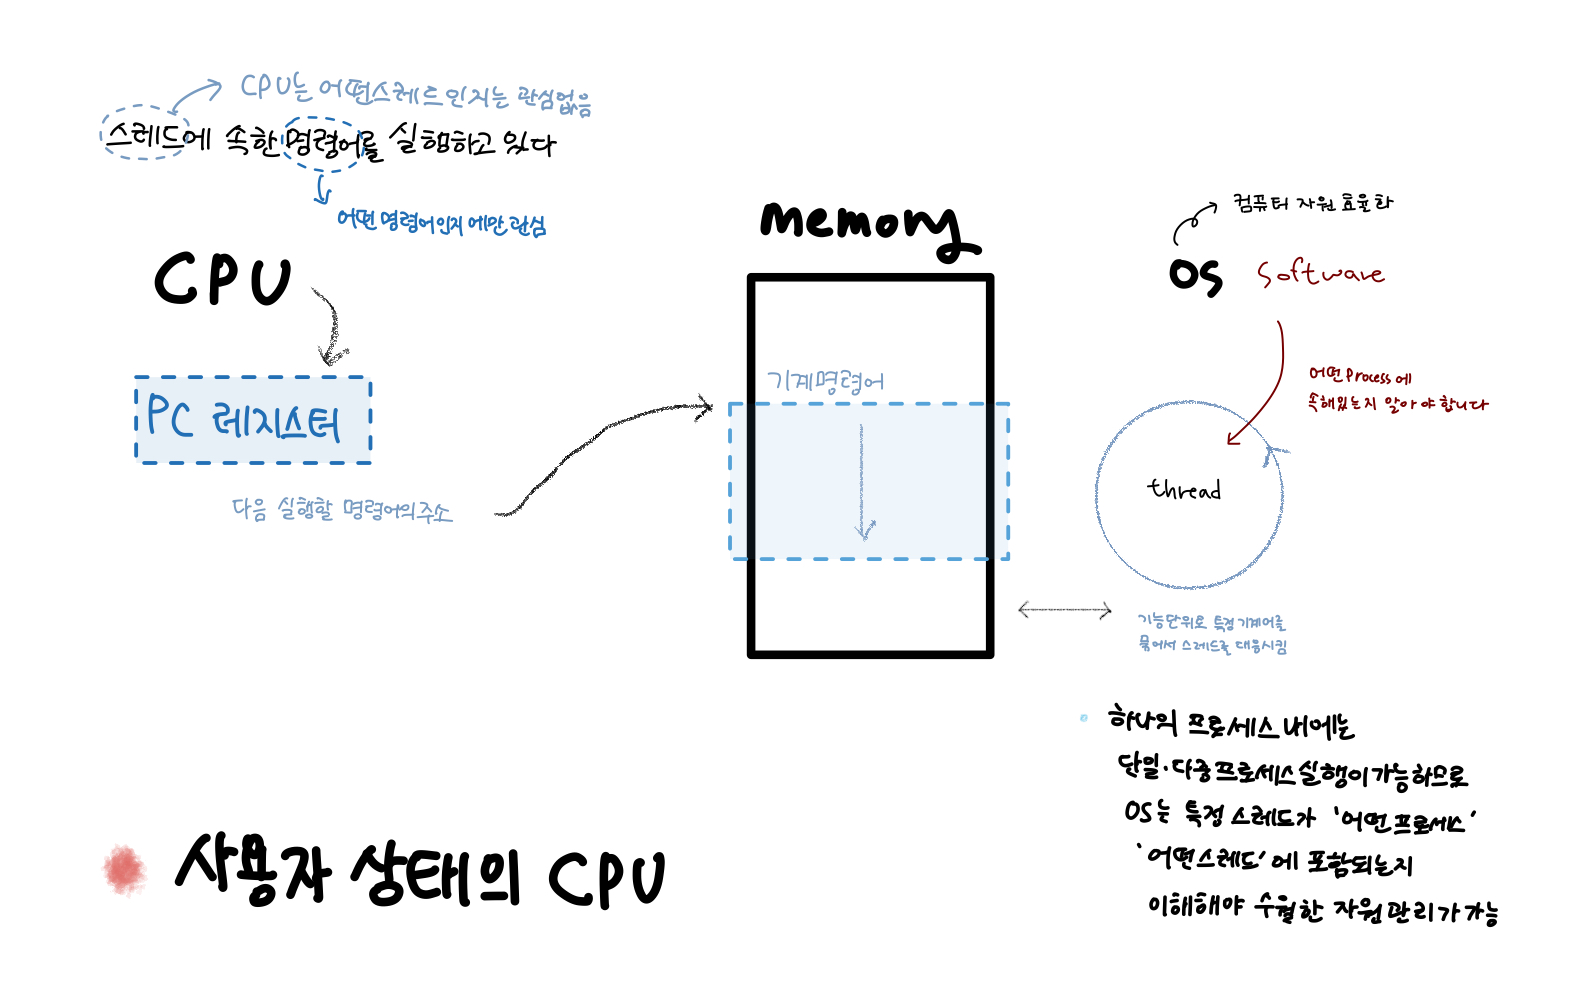 CPU는 어떤스레드인지는 관심없음
스레드에 속한 명령어를 실행하고 있다
어떤 명령어인지 에만 관심
CPU
PC 레지스터
다음 실행할 명령어의주소
memory
기계명령어
컴퓨터 자원 효율화
OS software
어떤 process에
속해있는지 알아야합니다
thread
기능단위로 특정기계어를
묶어서 스레드를 대응시킴
하나의 프로세스 내에는
단일·다중프로세스실행이가능하므로
OS는 특정 스레드가 '어떤프로세스'
'어떤스레드'에 포함되는지
이해해야 수월한 자원관리가 가능
사용자 상태의 CPU